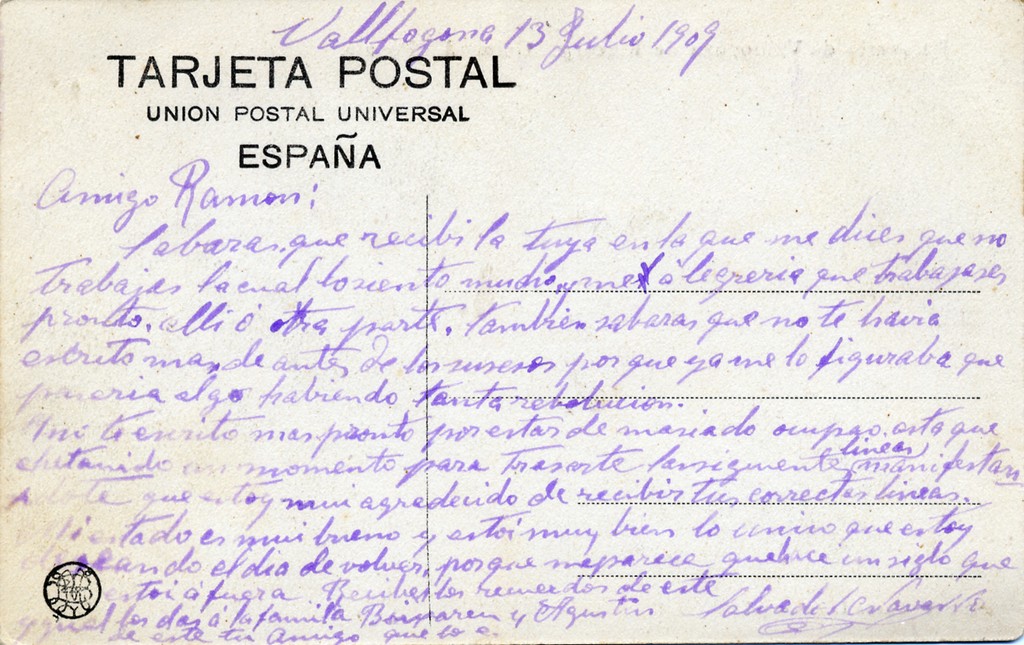 Vallfogona 13 Julio 1909
TARJETA POSTAL
UNION POSTAL UNIVERSAL
ESPAÑA
Amigo Ramon:
Sabaras que recibi la tuya en la que me dices que no
trabajas la cual lo siento mucho, y me alegreria que trabajases
pronto. alli ó otra parte. tambien sabaras que no te havia
escrito mas de antes de los susesos porque ya me lo figuraba que
pasaria algo habiendo tanta rebolucion.
te escrito mas pronto por estar de masiado ocupao, asta que
un momento para trasarte las siguiente lineas manifestan
dote que estoy mui agradecido de recibir tus correctas lineas.
Mi estado es mui bueno y estoi muy bien lo unico que estoy
deseando el dia de volver, porque me parece que hace un siglo que
estoi á fuera. Recibe los recuerdos de este
y que les das á la familia y Agustin Salvador Navarro
de este tu Amigo que lo e.